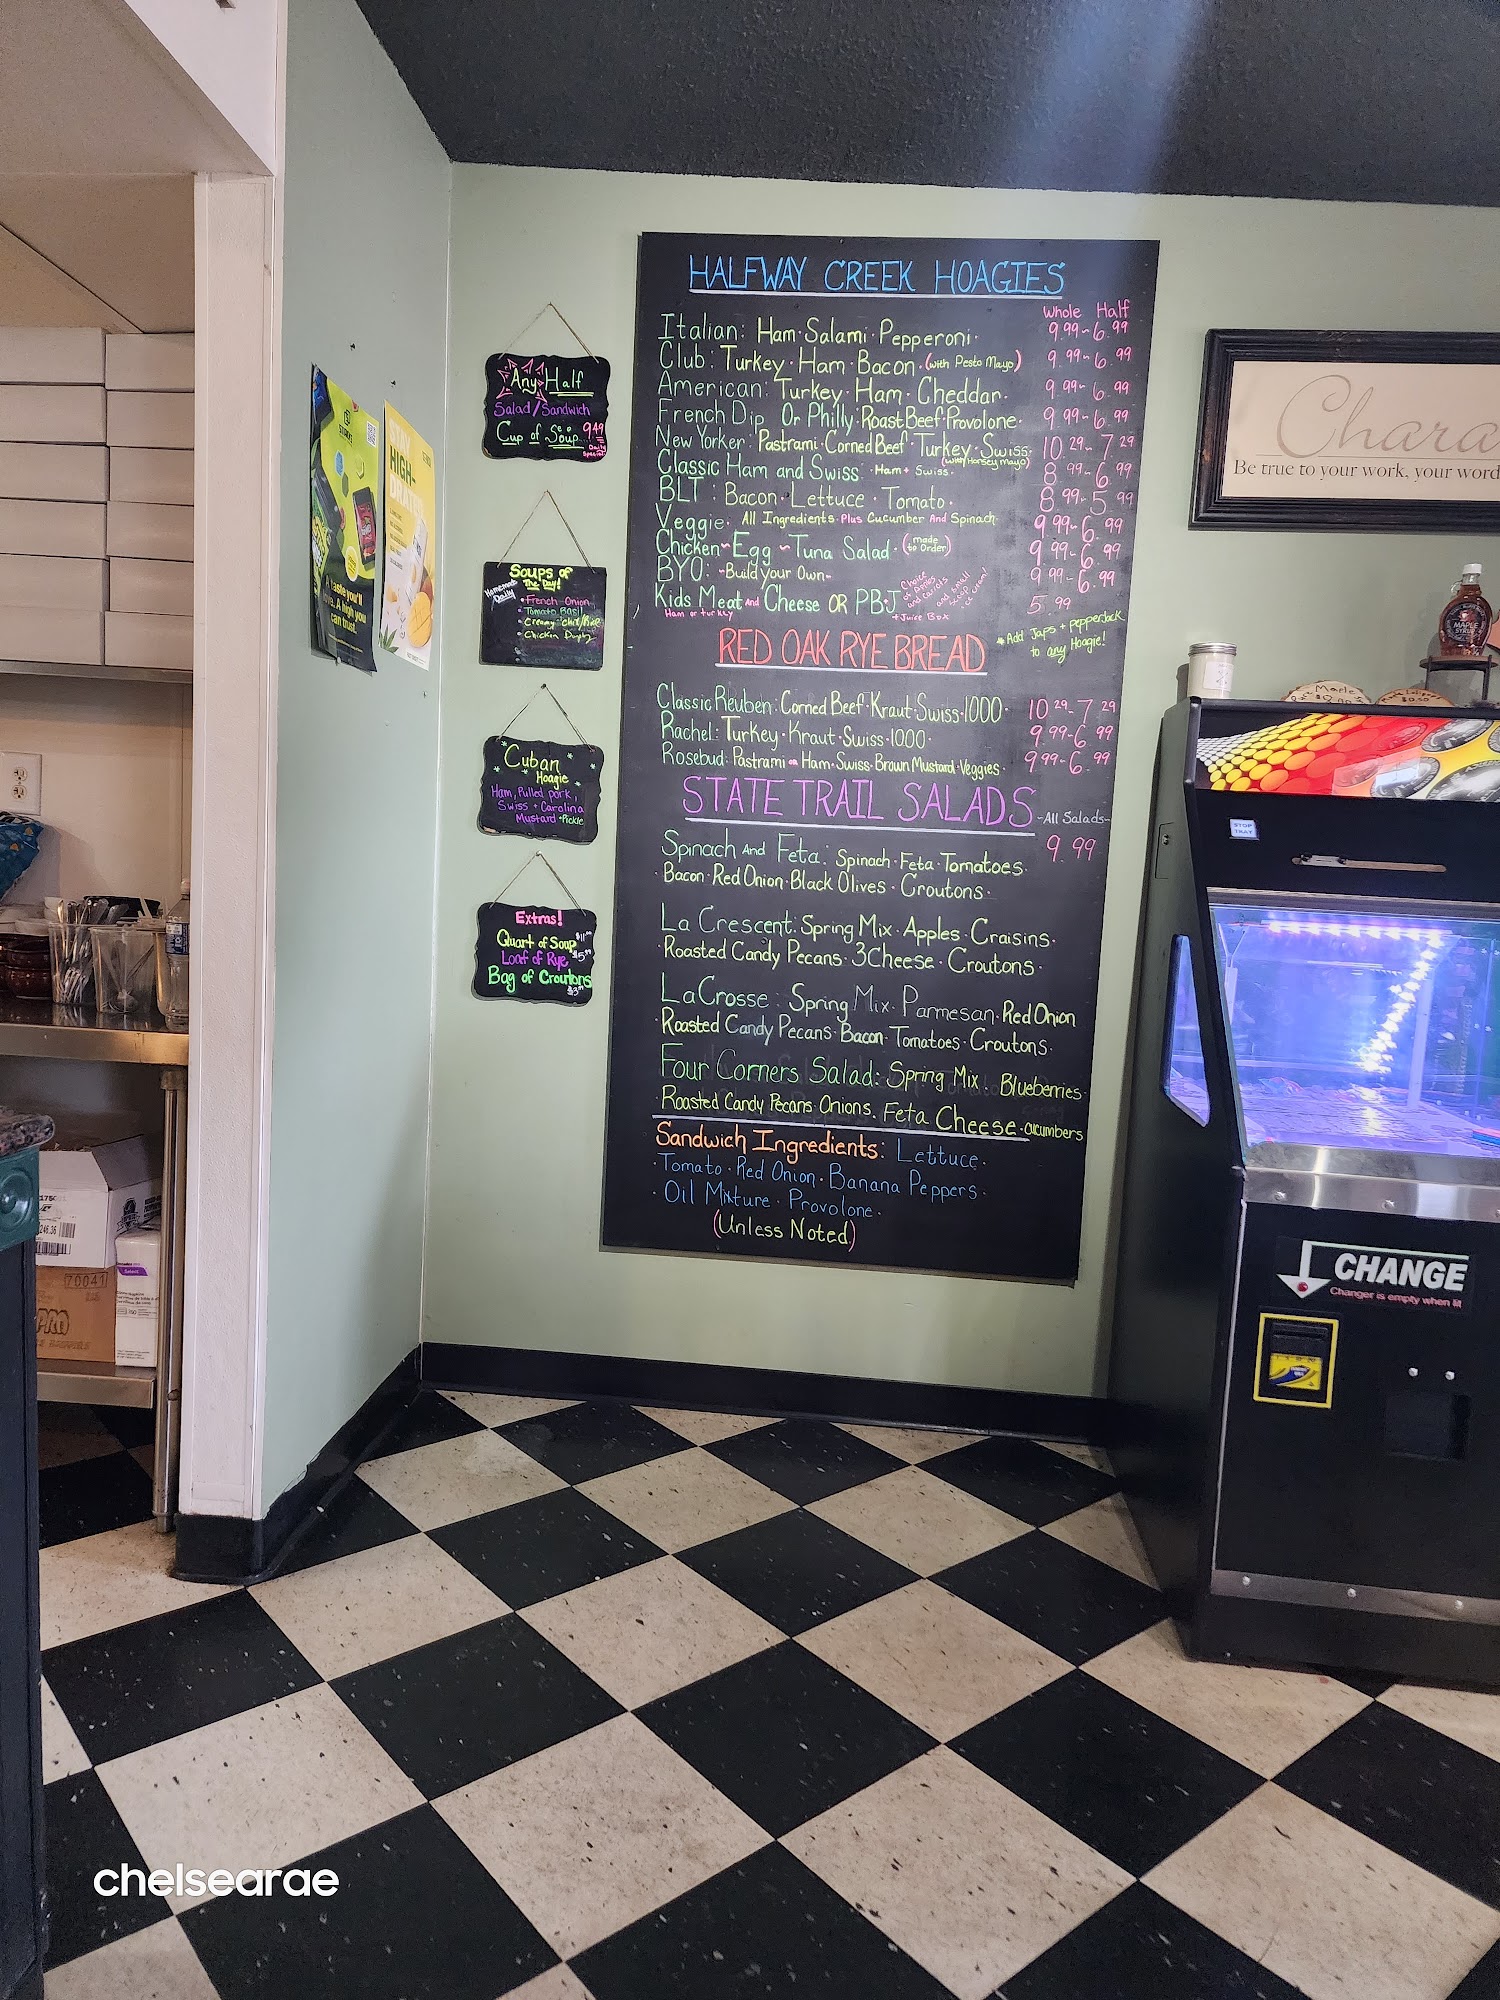 HALFWAY CREEK HOAGIES
Whole Half
Italian: Ham · Salami · Pepperoni · 9.99 - 6.99
Club: Turkey · Ham · Bacon · (with Pesto Mayo) 9.99 - 6.99
American: Turkey · Ham · Cheddar · 9.99 - 6.99
French Dip Or Philly: Roast Beef · Provolone · 9.99 - 6.99
New Yorker: Pastrami · Corned Beef · Turkey · Swiss · 10.29 - 7.29
(with Horsey Mayo)
Classic Ham and Swiss: · Ham + Swiss · 8.99 - 6.99
BLT: Bacon · Lettuce · Tomato · 8.99 - 5.99
Veggie · All Ingredients Plus Cucumber And Spinach · 9.99 - 6.99
Chicken ~ Egg ~ Tuna Salad · (made to Order) 9.99 - 6.99
BYO: ~Build your Own~ 9.99 - 6.99
Kids Meat and Cheese OR PB·J 5.99
Ham or turkey
+ Juice Box
* Add Japs + pepperJack
to any Hoagie!
RED OAK RYE BREAD
Classic Reuben: Corned Beef · Kraut · Swiss · 1000 · 10.29 - 7.29
Rachel: Turkey · Kraut · Swiss · 1000 · 9.99 - 6.99
Rosebud: Pastrami or Ham · Swiss · Brown Mustard · Veggies · 9.99 - 6.99
STATE TRAIL SALADS
-All Salads-
9.99
Spinach And Feta: Spinach · Feta · Tomatoes ·
Bacon · Red Onion · Black Olives · Croutons ·
La Crescent: Spring Mix · Apples · Craisins ·
Roasted Candy Pecans · 3 Cheese · Croutons ·
LaCrosse: Spring Mix · Parmesan · Red Onion
· Roasted Candy Pecans · Bacon Tomatoes · Croutons ·
Four Corners Salad: Spring Mix · Blueberries ·
· Roasted Candy Pecans · Onions · Feta Cheese · cucumbers
Sandwich Ingredients: Lettuce ·
· Tomato · Red Onion · Banana Peppers ·
· Oil Mixture · Provolone ·
(Unless Noted)
Any Half
Salad/Sandwich
Cup of Soup 9.49
Daily Special
Soups of
The Day!
Homemade Daily
· French Onion
· Tomato Basil
· Chicken
Cuban
Hoagie
Ham, Pulled pork,
Swiss + Carolina
Mustard + Pickle
Extras!
Quart of Soup
Loaf of Rye
Bag of Croutons
STAY
HIGH-
A taste you'll
A high you
can trust.
Chara
Be true to your work, your word
MAPLE
SYRUP
CHANGE
Changer is empty when lit
70041
Select
chelsearae